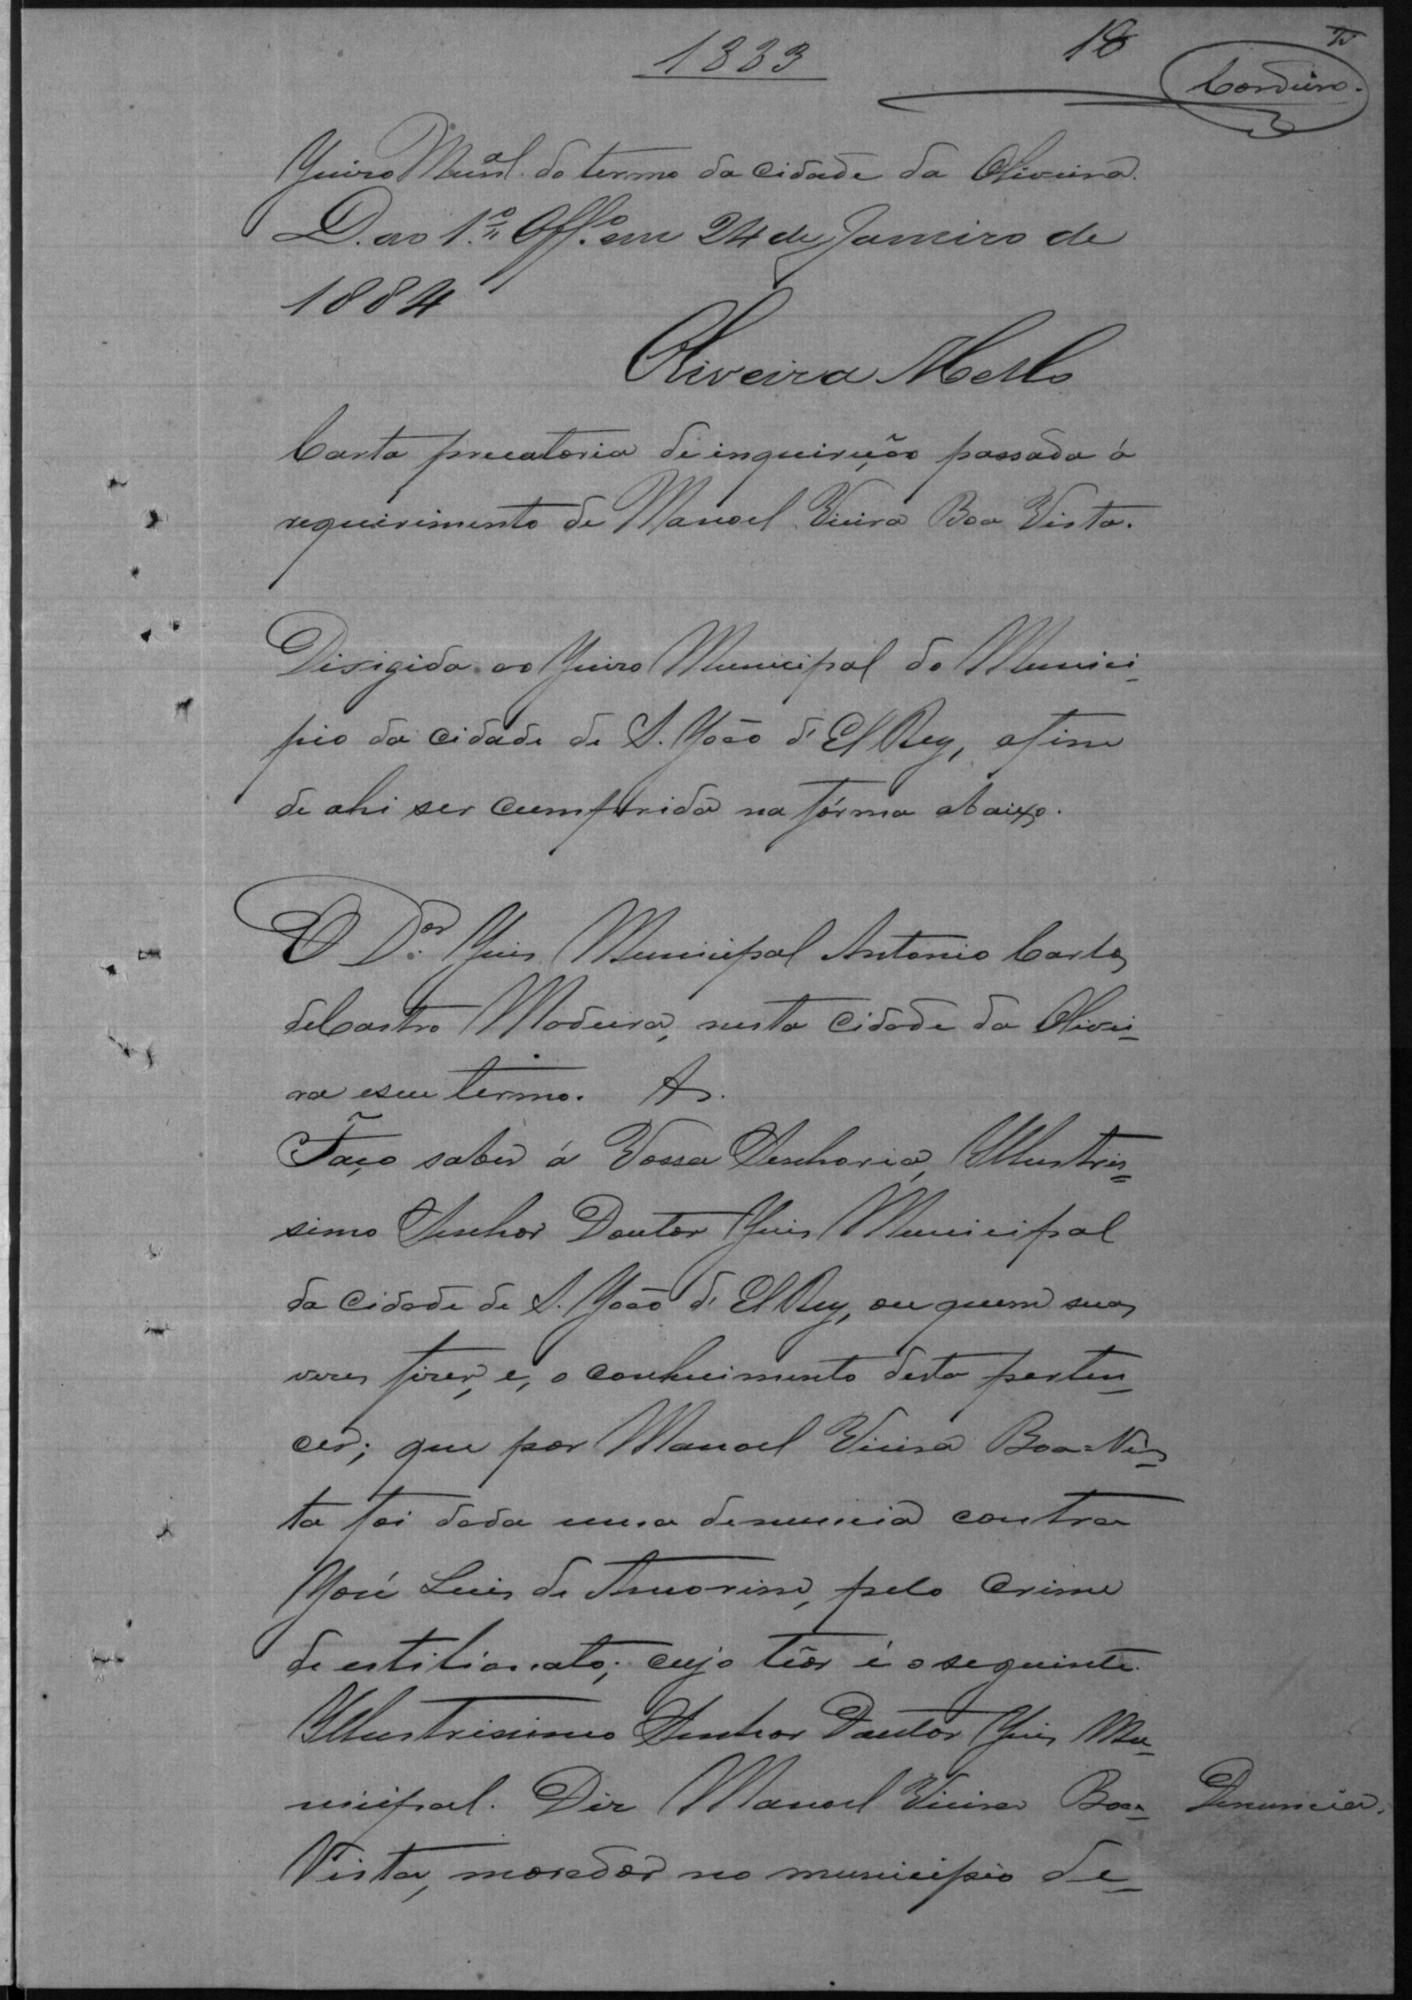 1883 18
Cordeiro.
Juizo Mun.al do termo da cidade da Oliveira.
D. ao 1.º Off.º em 24 de Janeiro de
1884
Oliveira Mello
Carta precatoria de inquirição passada á
requirimento de Manoel Vieira Boa Vista.
Dirigida ao Juizo Municipal do Munici-
pio da cidade de S. João d'El Rey, afim
de ahi ser cumprida na fórma abaixo.
O D.or Juis Municipal Antonio Carlos
de Castro Madeira, nesta cidade da Olivei-
ra e seu termo.
Faço saber á Vossa Senhoria, Illustris-
simo Senhor Doutor Juis Municipal
da cidade de S. João d'El Rey, ou quem suas
veses fizer, e, o conhecimento desta perten-
cer; que por Manoel Vieira Boa=Vis-
ta foi dada uma denuncia contra
José Luis de Amorim, pelo crime
de estilionato; cujo teôr é o seguinte.
Illustrissimo Senhor Doutor Juis Mu-
nicipal. Diz Manoel Vieira Boa- Denuncia.
Vista, moradôr no municipio de-